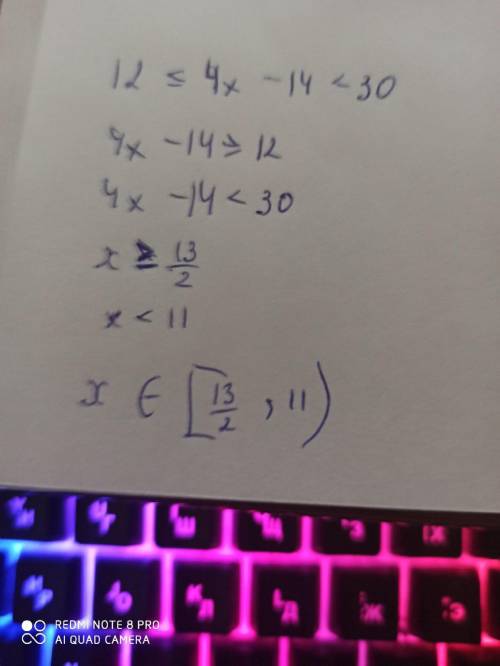 12 ≤ 4x - 14 < 30
4x - 14 ≥ 12
4x - 14 < 30
x ≥ 13/2
x < 11
x ∈ [13/2, 11)
Г Ш Щ З Х
О Л Д Ж Э
REDMI NOTE 8 PRO
AI QUAD CAMERA